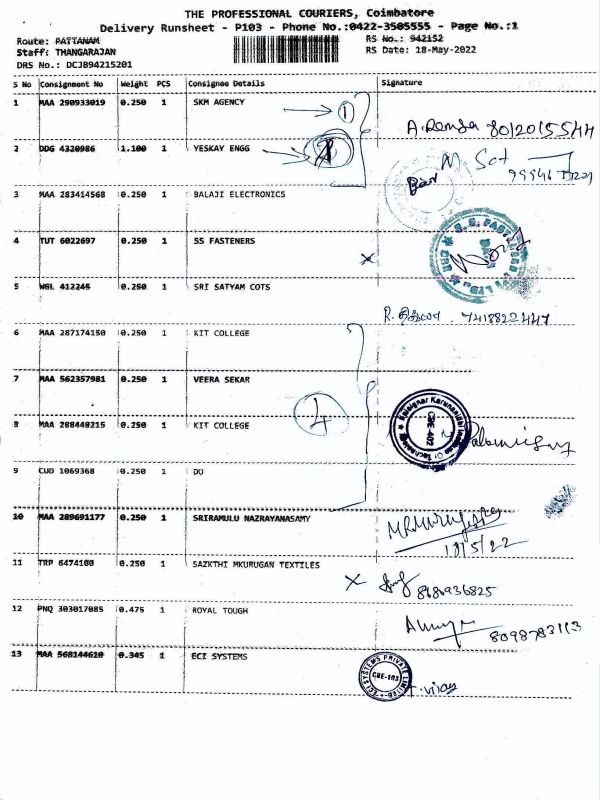 THE PROFESSIONAL COURIERS, Coimbatore
Delivery Runsheet - P103 - Phone No.:0422-3505555 - Page No.:1
Route: PATTANAM
RS No.: 942152
Staff: THANGARAJAN
RS Date: 18-May-2022
DRS No.: DCJB94215201
S No Consignment No Weight PCS Consignee Details Signature
1 MAA 290933019 0.250 1 SKM AGENCY 1
2 DDG 4320986 1.100 1 YESKAY ENGG
3 MAA 283414568 0.250 1 BALAJI ELECTRONICS
4 TUT 6022697 0.250 1 SS FASTENERS
5 WGL 412245 0.250 1 SRI SATYAM COTS
R. 7418822447
6 MAA 287174150 0.250 1 KIT COLLEGE
7 MAA 562357981 0.250 1 VEERA SEKAR
4
8 MAA 288448215 0.250 1 KIT COLLEGE
CBE-402
9 CUD 1069368 0.250 1 DO
10 MAA 289691177 0.250 1 SRIRAMULU NAZRAYANASAMY
18/5/22
11 TRP 6474100 0.250 1 SAZKTHI MKURUGAN TEXTILES
8680936825
12 PNQ 303017085 0.475 1 ROYAL TOUGH
8098783113
13 MAA 568144610 0.345 1 ECI SYSTEMS
ECI SYSTEMS PRIVATE LIMITED
CBE-103